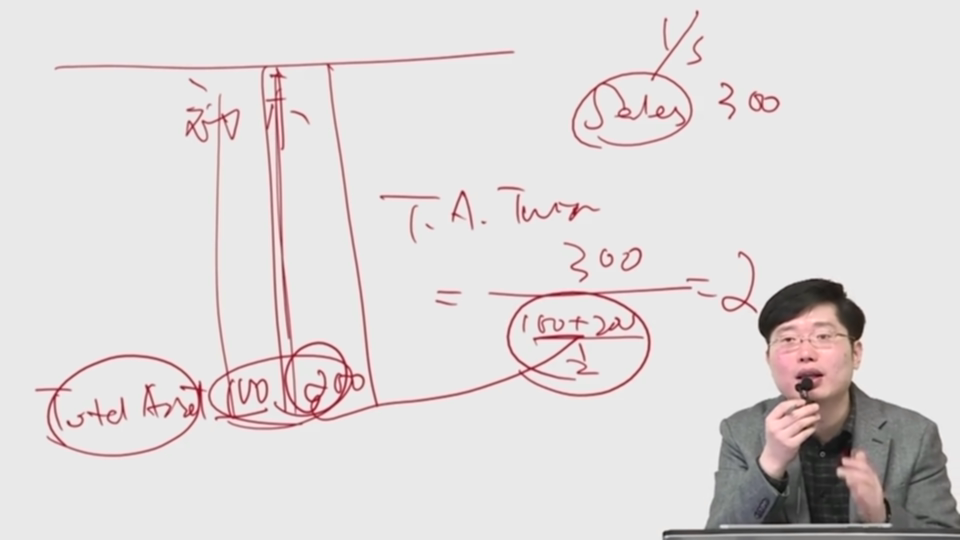 I/S
Sales 300
初 末
T.A. Turn
300
= ――― = 2
100+200
2
Total Asset 100 200